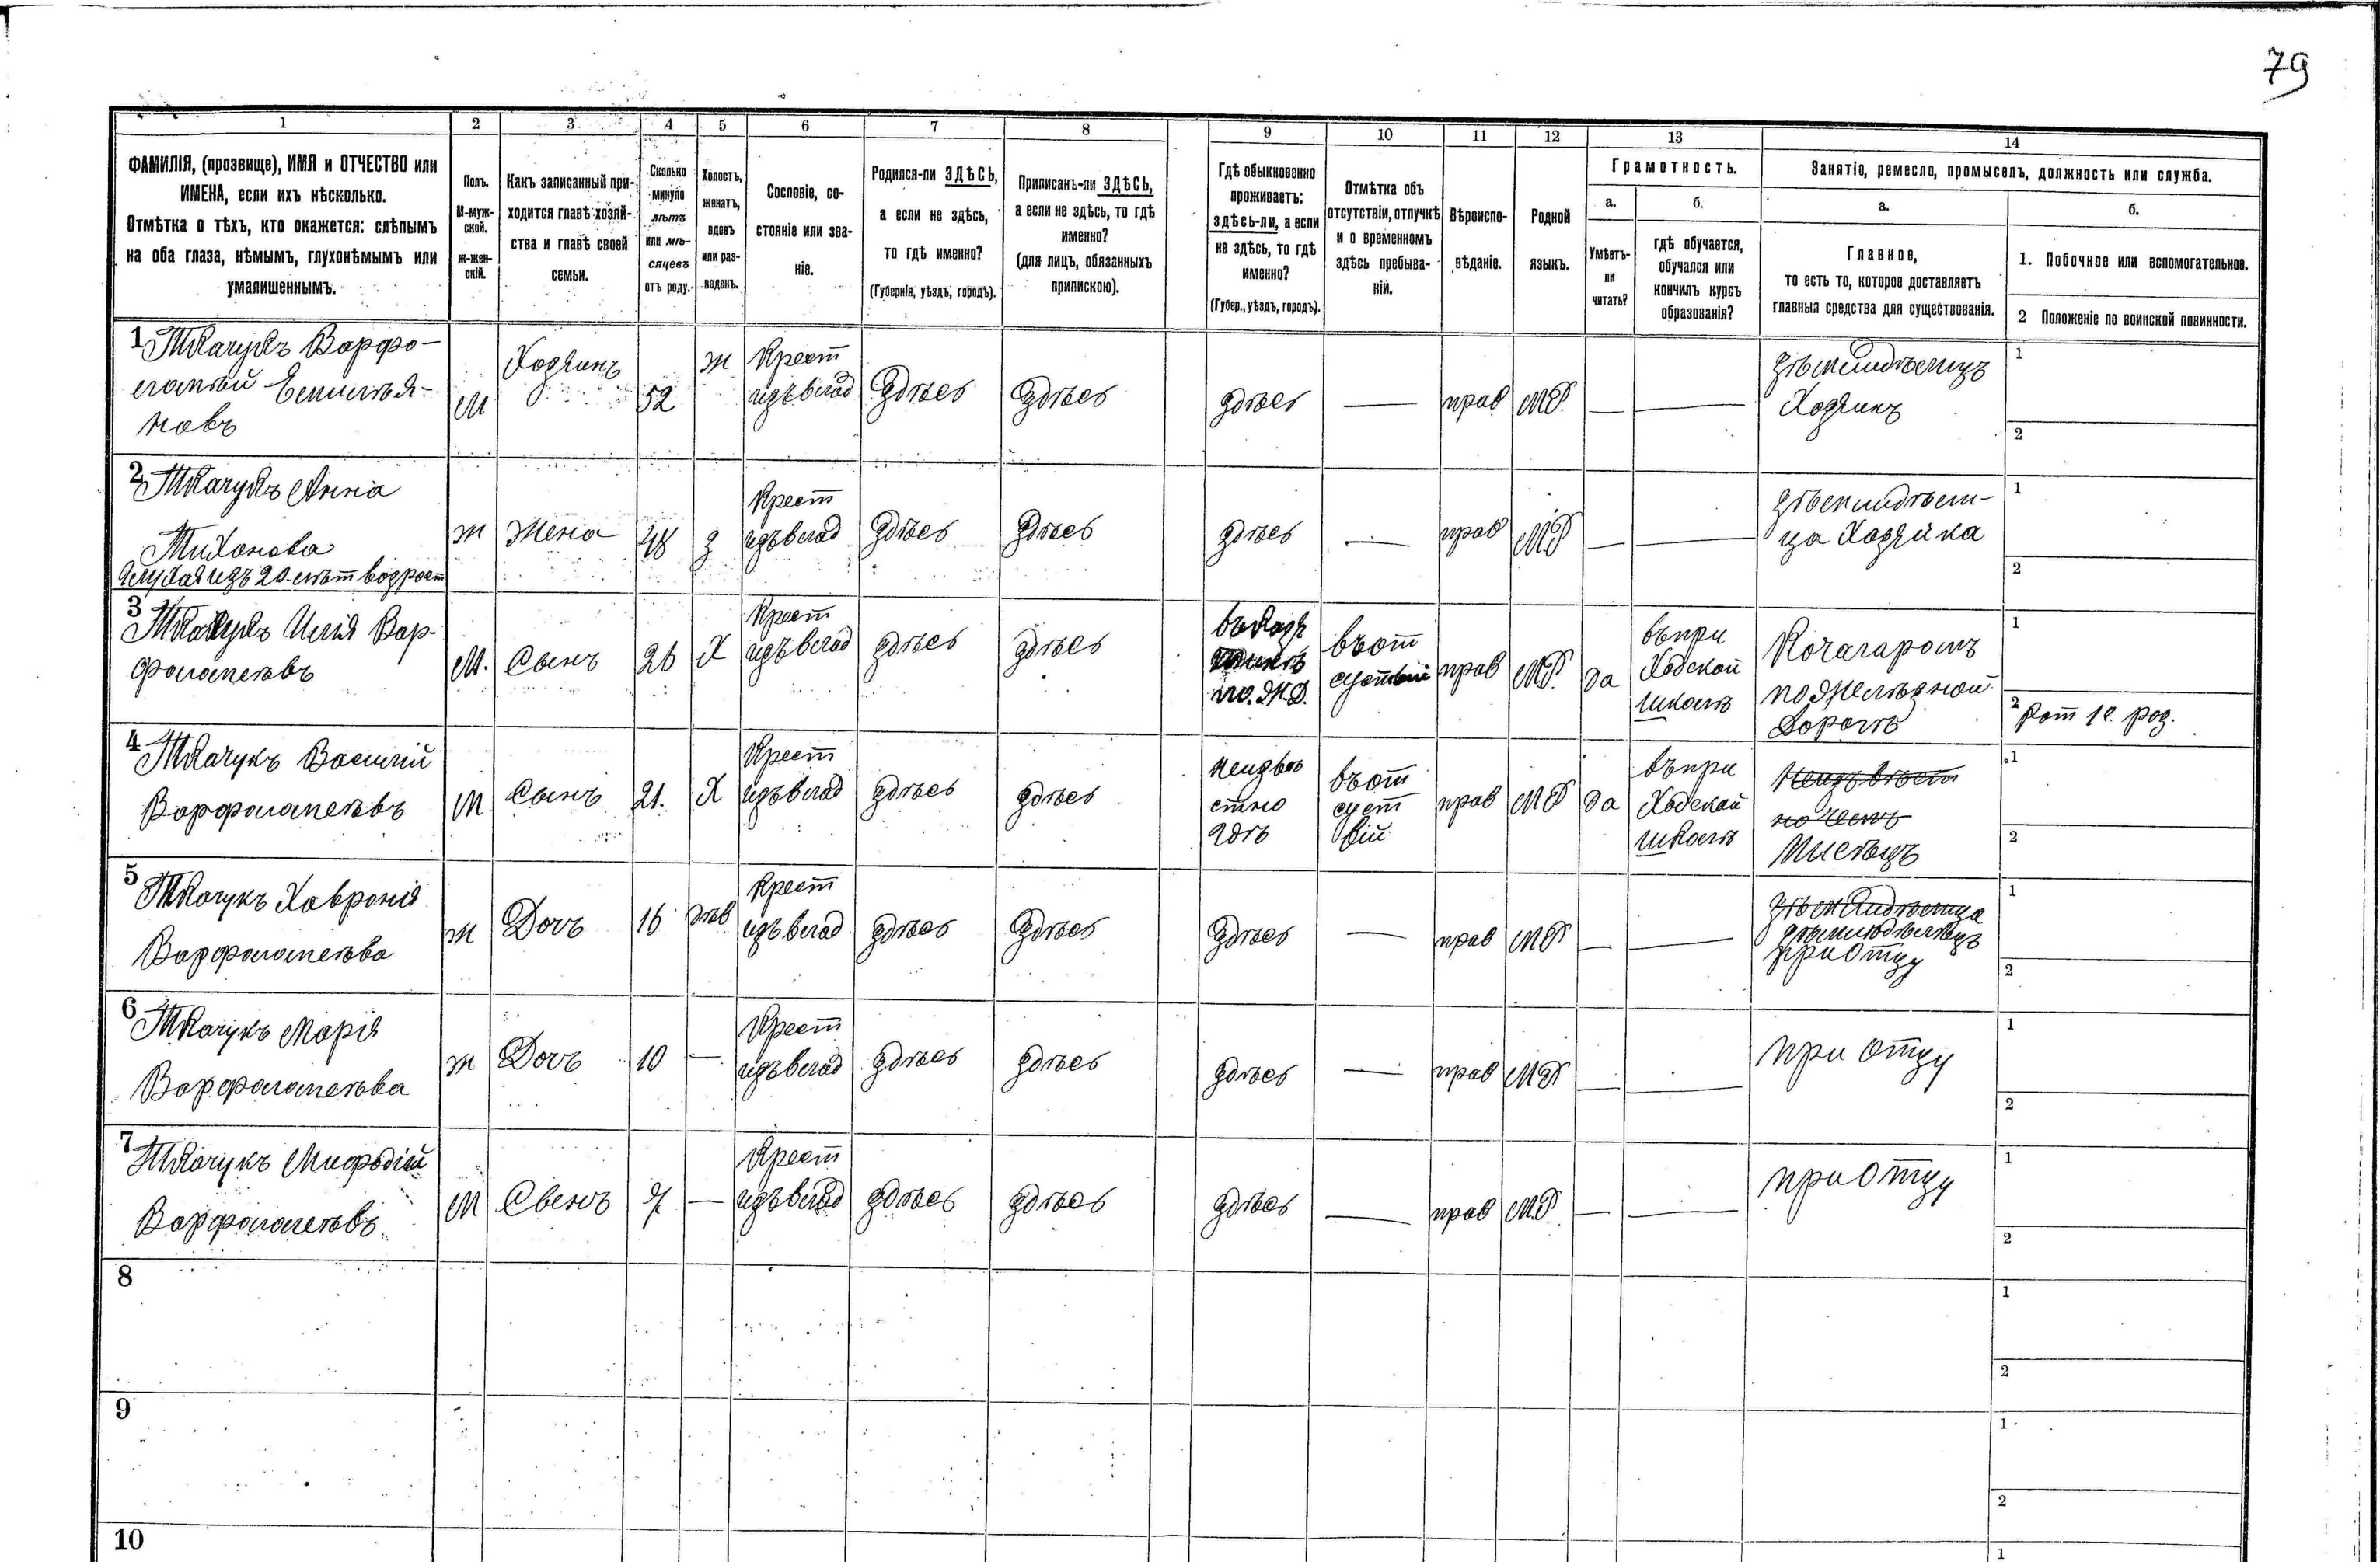 79
1 2 3 4 5 6 7 8 9 10 11 12 13 14
ФАМИЛІЯ, (прозвище), ИМЯ и ОТЧЕСТВО или
ИМЕНА, если ихъ нѣсколько.
Отмѣтка о тѣхъ, кто окажется: слѣпымъ
на оба глаза, нѣмымъ, глухонѣмымъ или
умалишеннымъ.
Полъ.
М-муж-
ской.
Ж-жен-
скій.
Какъ записанный при-
ходится главѣ хозяй-
ства и главѣ своей
семьи.
Сколько
минуло
лѣтъ
или мѣ-
сяцевъ
отъ роду.
Холостъ,
женатъ,
вдовъ
или раз-
веденъ.
Сословіе, со-
стояніе или зва-
ніе.
Родился-ли ЗДѢСЬ,
а если не здѣсь,
то гдѣ именно?
(Губернія, уѣздъ, городъ).
Приписанъ-ли ЗДѢСЬ,
а если не здѣсь, то гдѣ
именно?
(для лицъ, обязанныхъ
припискою).
Гдѣ обыкновенно
проживаетъ:
ЗДѢСЬ-ЛИ, а если
не здѣсь, то гдѣ
именно?
(Губер., уѣздъ, городъ).
Отмѣтка объ
отсутствіи, отлучкѣ
и о временномъ
здѣсь пребыва-
ніи.
Вѣроиспо-
вѣданіе.
Родной
языкъ.
Грамотность.
а.
Умѣетъ-
ли
читать?
б.
гдѣ обучается,
обучался или
кончилъ курсъ
образованія?
Занятіе, ремесло, промыселъ, должность или служба.
а.
Главное,
то есть то, которое доставляетъ
главныя средства для существованія.
б.
1. Побочное или вспомогательное.
2 Положеніе по воинской повинности.
1 Ткачукъ Варфо-
ломей Емилья-
новъ
М
Хозяинъ
52
ж
Крест
изъ влад
здѣсь
здѣсь
здѣсь
—
прав
МР.
—
—
Хозяинъ
1
2
2 Ткачукъ Анна
Тихонова
глухая изъ 20 лѣт возраст
ж
Жена
48
з
Крест
изъ влад
здѣсь
здѣсь
здѣсь
—
прав
МР
—
—
ца Хозяйка
1
2
3 Ткачукъ Илія Вар-
фоломеѣвъ
М.
Сынъ
26
Х
Крест
изъ влад
здѣсь
здѣсь
по.Ж.Д.
въ от
суствіи
прав
МР.
да
въ при
ходской
школѣ
Кочагаромъ
по желѣзной
дорогѣ
1
2 Рат 1й. раз.
4 Ткачукъ Василій
Варфоломеѣвъ
М
Сынъ
21.
Х
Крест
изъ влад
здѣсь
здѣсь
неизвѣ
стно
гдѣ
въ от
суст
вій
прав
МР
да
въ при
ходской
школѣ
Неизвѣст
но чемъ
1
2
5 Ткачукъ Хавронія
Варфоломеѣва
ж
Дочъ
16
дѣв
Крест
изъ влад
здѣсь
здѣсь
здѣсь
—
прав
МР
—
—
при отцу
1
2
6 Ткачукъ Марія
Варфоломеѣва
ж
Дочъ
10
—
Крест
изъ влад
здѣсь
здѣсь
здѣсь
—
прав
МР
—
—
при отцу
1
2
7 Ткачукъ Мифодій
Варфоломеѣвъ
М
Сынъ
—
Крест
изъ влад
здѣсь
здѣсь
здѣсь
—
прав
МР.
—
—
при отцу
1
2
8
1
2
9
1
2
10
1